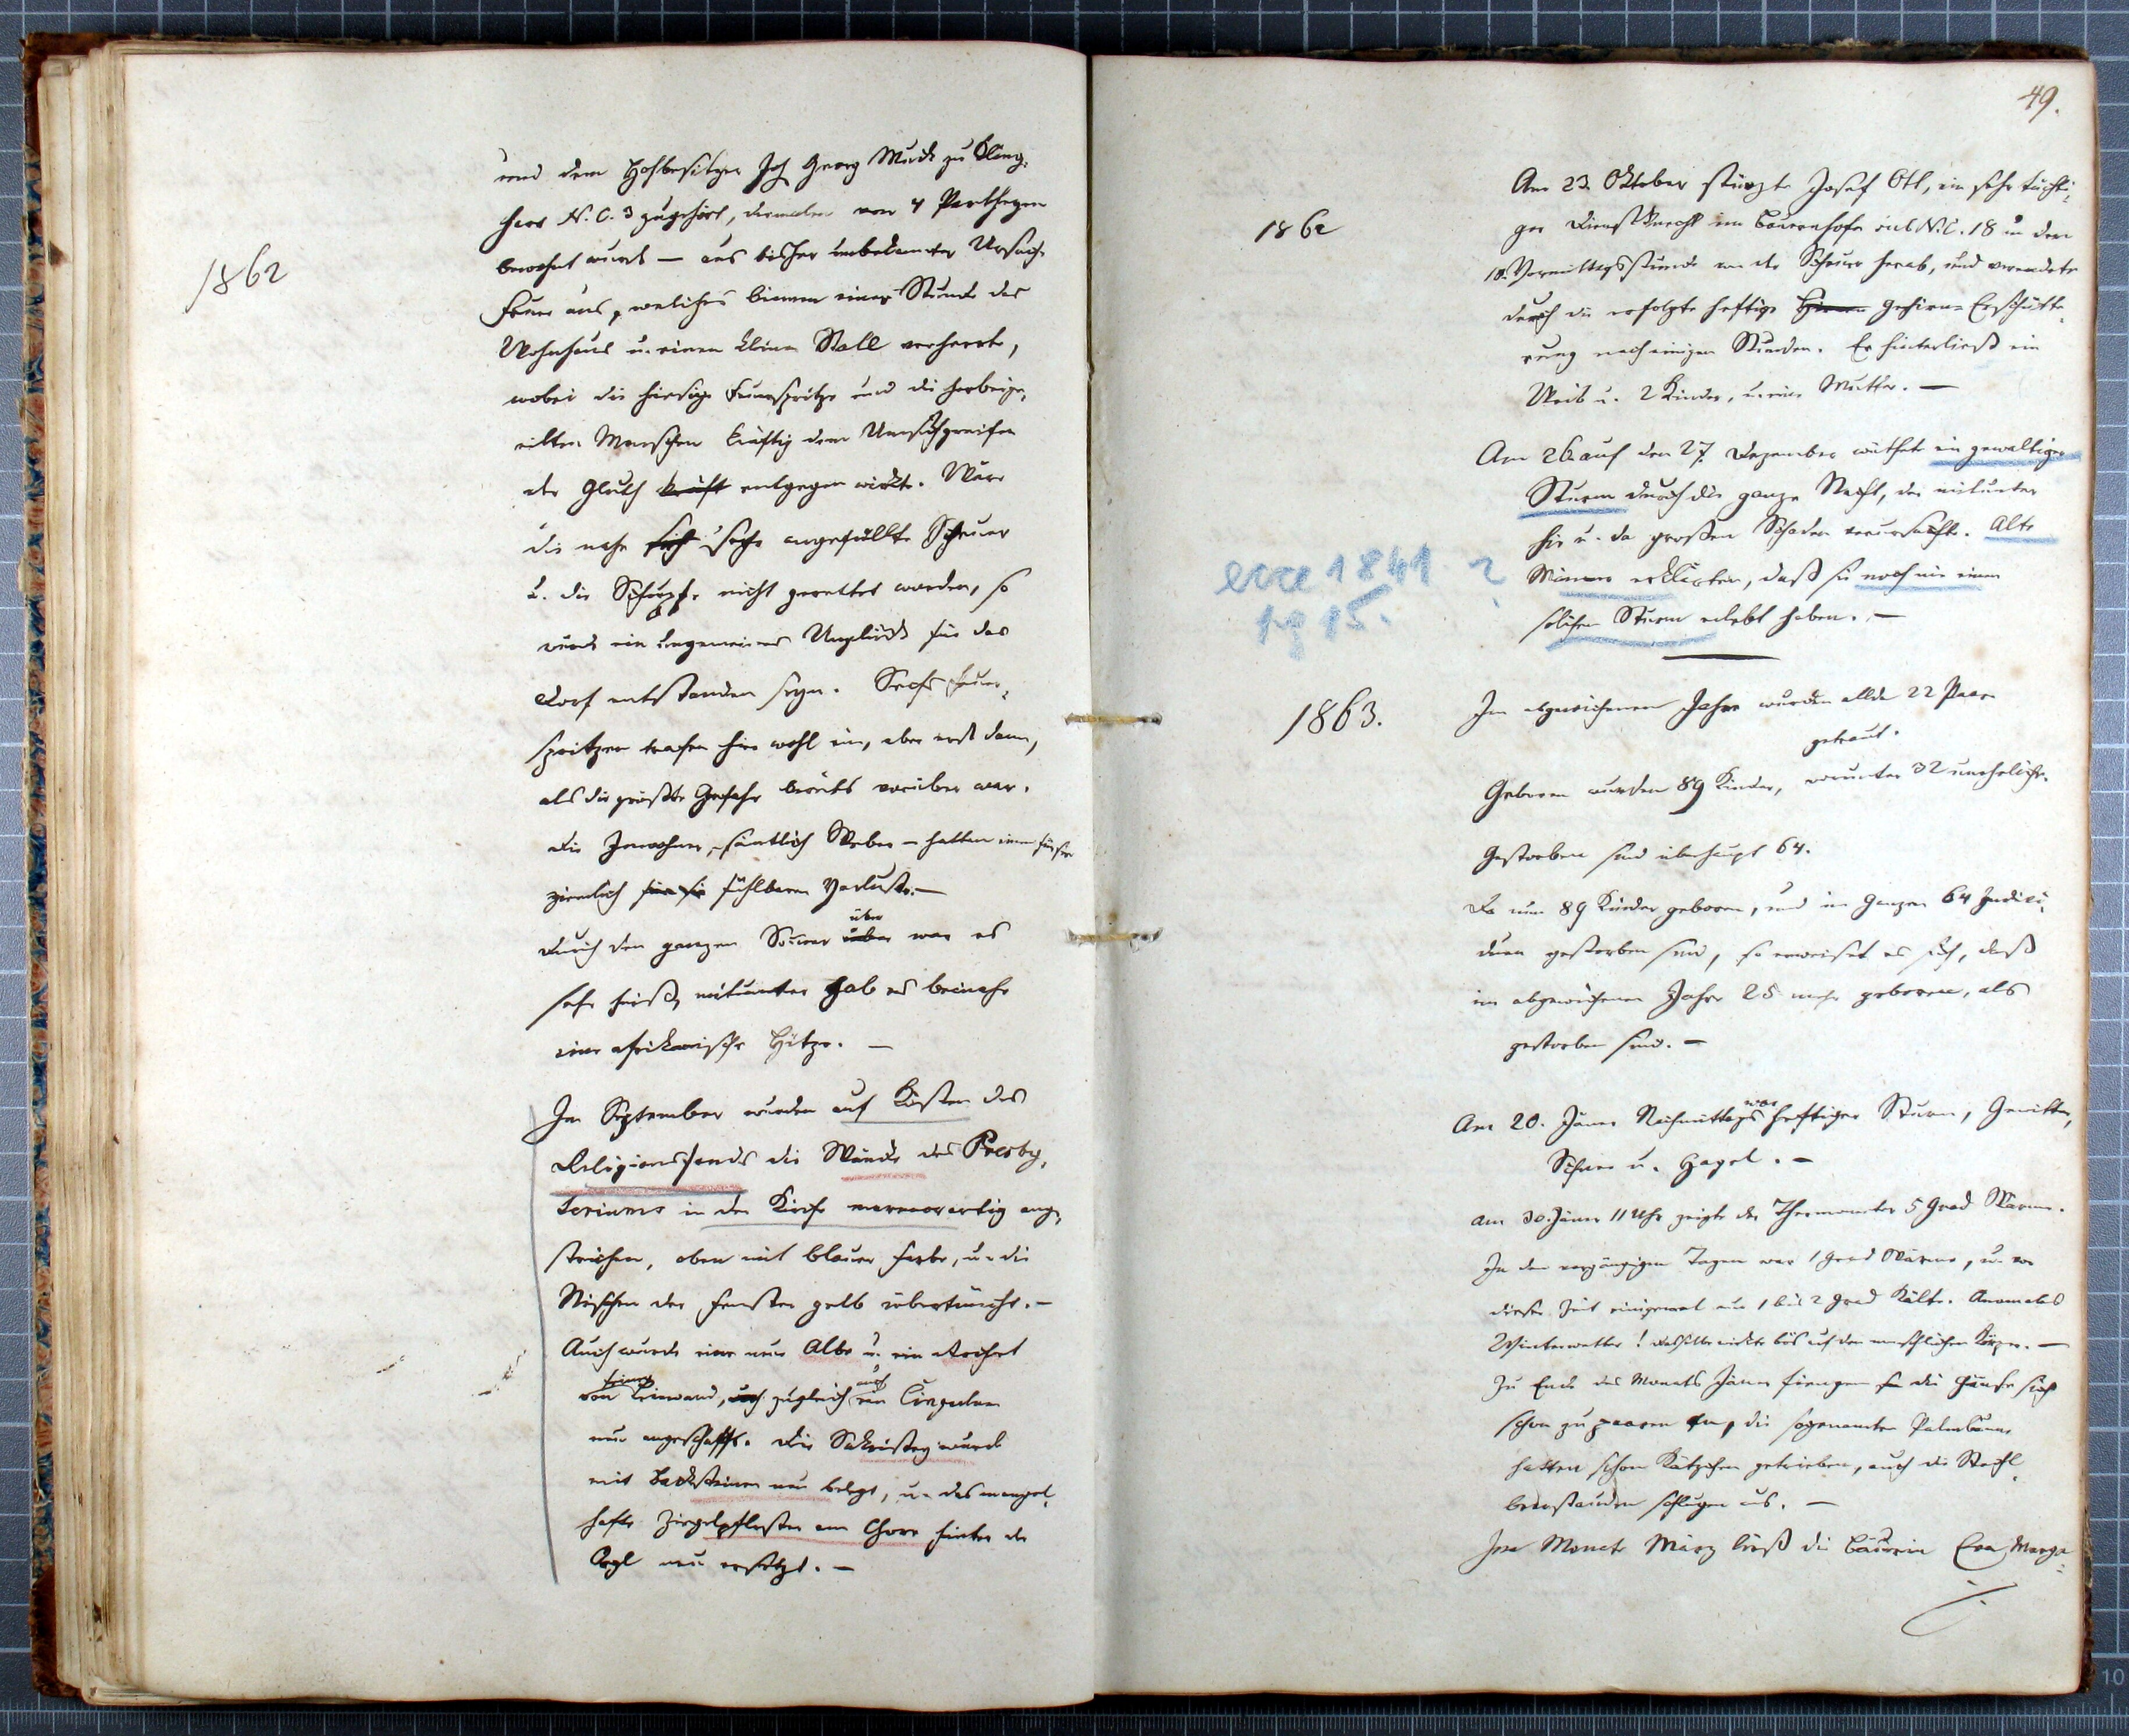 1862
und dem Hofbesitzer Joh Georg Muck zu Kling,
hero N. C. 3 zugehört, dermalen von 4 Partheyen
bewohnt wurde — aus bisher unbekannter Ursache
Feuer aus, welches binnen einer Stunde das
Wohnhaus u. einen kleinen Stall verheerte,
wobei die hiesige Feuerspritze und die herbeige,
eilten Menschen kräftig dem Umsichgreifen
der Gluth kräft entgegen wirkte. Wäre
die nahe sehr angefüllte Scheuer
u. die Schupfe nicht gerettet worden, so
würde ein ungemeines Unglück für das
Dorf entstanden seyn. Sechs Feuer,
spritzen trafen hier wohl ein, aber erst dann,
als die größte Gefahr bereits vorüber war.
Die Inwohner, sämtlich Weber — hatten für sie
ziemlich für sie fühlbaren Verlust. —
über
Durch den ganzen Sommer über war es
sehr heiß, mitunter gab es beinahe
eine afrikanische Hitze. —
Im September wurden auf Kosten des
Religionsfonds die Wände des Presby,
teriums in der Kirche marmorartig ange,
strichen, oben mit blauer Farbe, u. die
Nischen der Fenster gelb übertüncht. —
Auch wurde eine neue Albe u. ein Rochet
feiner auch
von Leinwand, auch zugleich ein Cingulum
neu angeschafft. Die Sakristey wurde
mit Backsteinen neu belegt, u. das mangel,
hafte Ziegelpflaster am Chore hinter der
Orgl neu ersetzt. —
49.
1862
Am 23. Oktober stürzte Josef Ott, ein sehr tüchti,
ger Dienstknecht im Bauernhofe sub N. C. 18 in der
10. Vormittagsstunde von der Scheuer herab, und verendete
durch die erfolgte heftige Hirn Gehirn-Erschütte,
rung nach einigen Stunden. Er hinterließ ein
Weib u. 2 Kinder, u. eine Mutter. —
Am 26. auf den 27. Dezember wüthete ein gewaltiger
Sturm durch die ganze Nacht, der mitunter
hie u. da großen Schaden verursachte. Alte
Männer erklärten, daß sie noch nie einen
solchen Sturm erlebt haben. —
ecce 1841 ?
pg 15.
1863.
Im abgewichenen Jahre wurden allda 22 Paare
getraut.
Geboren wurden 89 Kinder, worunter 32 uneheliche.
Gestorben sind überhaupt 64.
Da nun 89 Kinder geboren, und im Ganzen 64 Indivi,
duen gestorben sind, so erweiset es sich, daß
im abgewichenen Jahre 25 mehr geboren, als
gestorben sind. —
war
Am 20. Jäner Nachmittags heftiger Sturm, Gewitter,
Schnee u. Hagel. —
Am 30. Jäner 11 Uhr zeigte der Thermometer 5 Grad Wärme.
In den vorgängigen Tagen war 1 Grad Wärme, u. vor
dieser Zeit einigemal nur 1 bis 2 Grad Kälte. Anomales
Winterwetter! Dasselbe wirkte bös auf den menschlichen Körper. —
Zu Ende des Monats Jäner fiengen die Gänse sich
schon zu paaren an, die sogenannten Palmbäume
hatten schon Kätzchen getrieben, auch die Stachl,
beerstauden schlugen aus. —
Im Monate März ließ die Bäurin Eva Marga